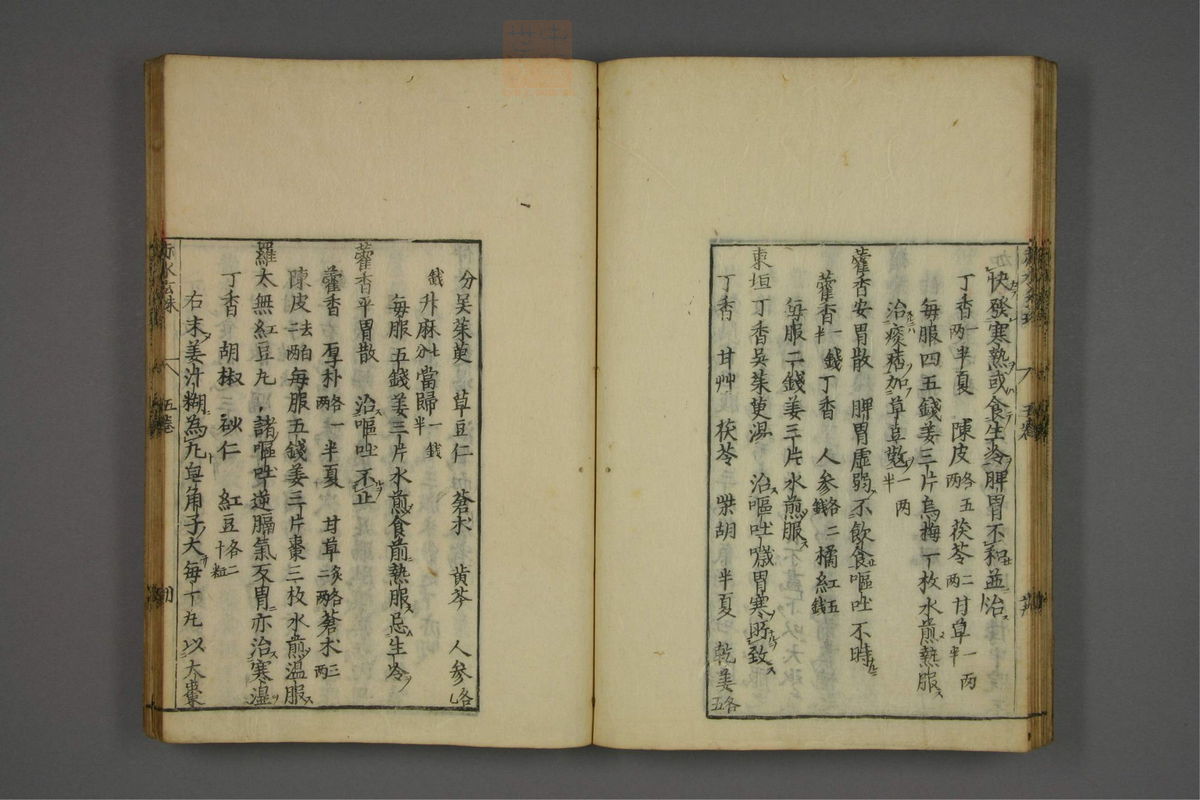 快發寒熱或食生冷脾胃不和並治ス
丁香一両半夏 陳皮各五両茯苓二両甘草一両半
毎服四五錢姜三片烏梅一枚水煎熱服ス
治痰痞加草菓一両半
藿香安胃散 脾胃虚弱不飲食嘔吐不時
藿香一錢半丁香 人参各二錢橘紅五錢
毎服二錢姜三片水煎服ス
東垣丁香呉茱萸湯 治嘔吐噦胃寒所致
丁香 甘艸 茯苓 柴胡 半夏 乾姜各五
分呉茱萸 草豆仁 蒼朮 黄芩 人参各七
錢升麻七分當歸一錢半
毎服五錢姜三片水煎食前熱服忌生冷
藿香平胃散 治嘔吐不止
藿香 厚朴各一両半夏 甘草炙各二両蒼朮三両
陳皮去白二両毎服五錢姜三片棗三枚水煎温服ス
羅太無紅豆丸 諸嘔吐逆膈氣反胃亦治寒湿
丁香 胡椒 砂仁 紅豆各二十粒
右末姜汁糊為丸皂角子大毎一丸以大棗
五巻